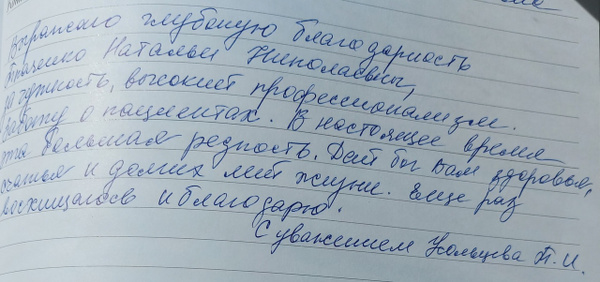 Выражаю глубокую благодарность
Ткаченко Наталье Николаевне,
за чуткость, высокий профессионализм.
заботу о пациентах. В настоящее время
эта большая редкость. Дай бог вам здоровья,
счастья и долгих лет жизни. Еще раз
восхищаюсь и благодарю.
С уважением Кольцова Т. И.